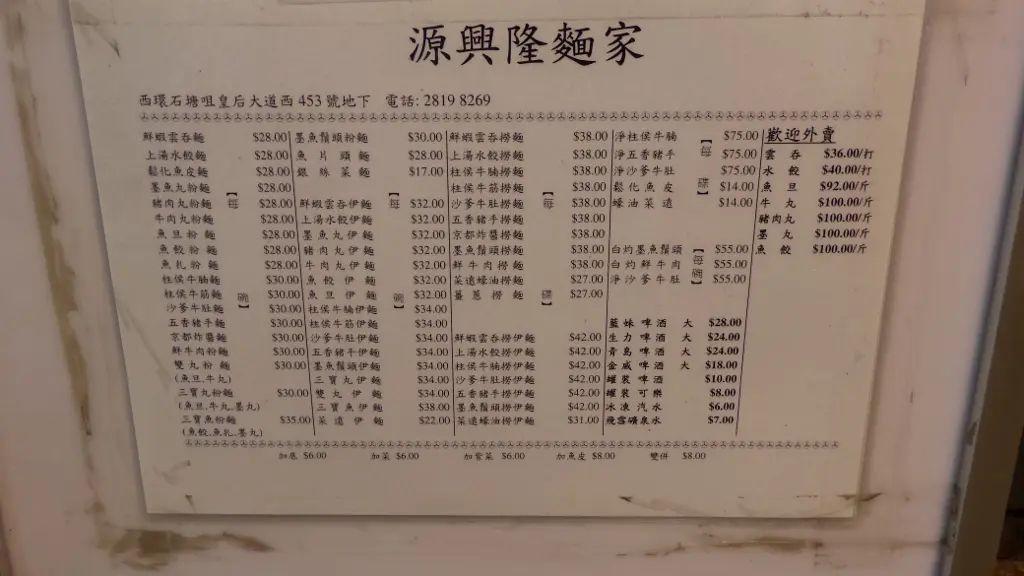 源興隆麵家
西環石塘咀皇后大道西 453 號地下 電話: 2819 8269
鮮蝦雲吞麵 $28.00
上湯水餃麵 $28.00
鬆化魚皮麵 $28.00
墨魚丸粉麵 $28.00
豬肉丸粉麵 $28.00
牛肉丸粉麵 $28.00
魚旦粉麵 $28.00
魚餃粉麵 $28.00
魚扎粉麵 $28.00
柱侯牛腩麵 $30.00
柱侯牛筋麵 $30.00
沙爹牛肚麵 $30.00
五香豬手麵 $30.00
京都炸醬麵 $30.00
鮮牛肉粉麵 $30.00
雙丸粉麵 $30.00
(魚旦,牛丸)
三寶丸粉麵 $30.00
(魚旦,牛丸,墨丸)
三寶魚粉麵 $35.00
(魚餃,魚扎,墨丸)
【每碗】
墨魚鬚頭粉麵 $30.00
魚片頭麵 $28.00
銀絲菜麵 $17.00
鮮蝦雲吞伊麵 $32.00
上湯水餃伊麵 $32.00
墨魚丸伊麵 $32.00
豬肉丸伊麵 $32.00
牛肉丸伊麵 $32.00
魚餃伊麵 $32.00
魚旦伊麵 $32.00
柱侯牛腩伊麵 $34.00
柱侯牛筋伊麵 $34.00
沙爹牛肚伊麵 $34.00
五香豬手伊麵 $34.00
墨魚鬚頭伊麵 $34.00
三寶丸伊麵 $34.00
雙丸伊麵 $34.00
三寶魚伊麵 $38.00
菜遠伊麵 $22.00
【每碗】
鮮蝦雲吞撈麵 $38.00
上湯水餃撈麵 $38.00
柱侯牛腩撈麵 $38.00
柱侯牛筋撈麵 $38.00
沙爹牛肚撈麵 $38.00
五香豬手撈麵 $38.00
京都炸醬撈麵 $38.00
墨魚鬚頭撈麵 $38.00
鮮牛肉撈麵 $38.00
菜遠蠔油撈麵 $27.00
薑蔥撈麵 $27.00
鮮蝦雲吞撈伊麵 $42.00
上湯水餃撈伊麵 $42.00
柱侯牛腩撈伊麵 $42.00
沙爹牛肚撈伊麵 $42.00
五香豬手撈伊麵 $42.00
墨魚鬚頭撈伊麵 $42.00
菜遠蠔油撈伊麵 $31.00
【每碟】
淨柱侯牛腩 $75.00
淨五香豬手 $75.00
淨沙爹牛肚 $75.00
鬆化魚皮 $14.00
蠔油菜遠 $14.00
【每碟】
白灼墨魚鬚頭 $55.00
白灼鮮牛肉 $55.00
淨沙爹牛肚 $55.00
【每碗】
藍妹啤酒 大 $28.00
生力啤酒 大 $24.00
青島啤酒 大 $24.00
金威啤酒 大 $18.00
罐裝啤酒 $10.00
罐裝可樂 $8.00
冰凍汽水 $6.00
飛雲礦泉水 $7.00
歡迎外賣
雲吞 $36.00/打
水餃 $40.00/打
魚旦 $92.00/斤
牛丸 $100.00/斤
豬肉丸 $100.00/斤
墨丸 $100.00/斤
魚餃 $100.00/斤
加底 $6.00 加菜 $6.00 加紫菜 $6.00 加魚皮 $8.00 雙併 $8.00